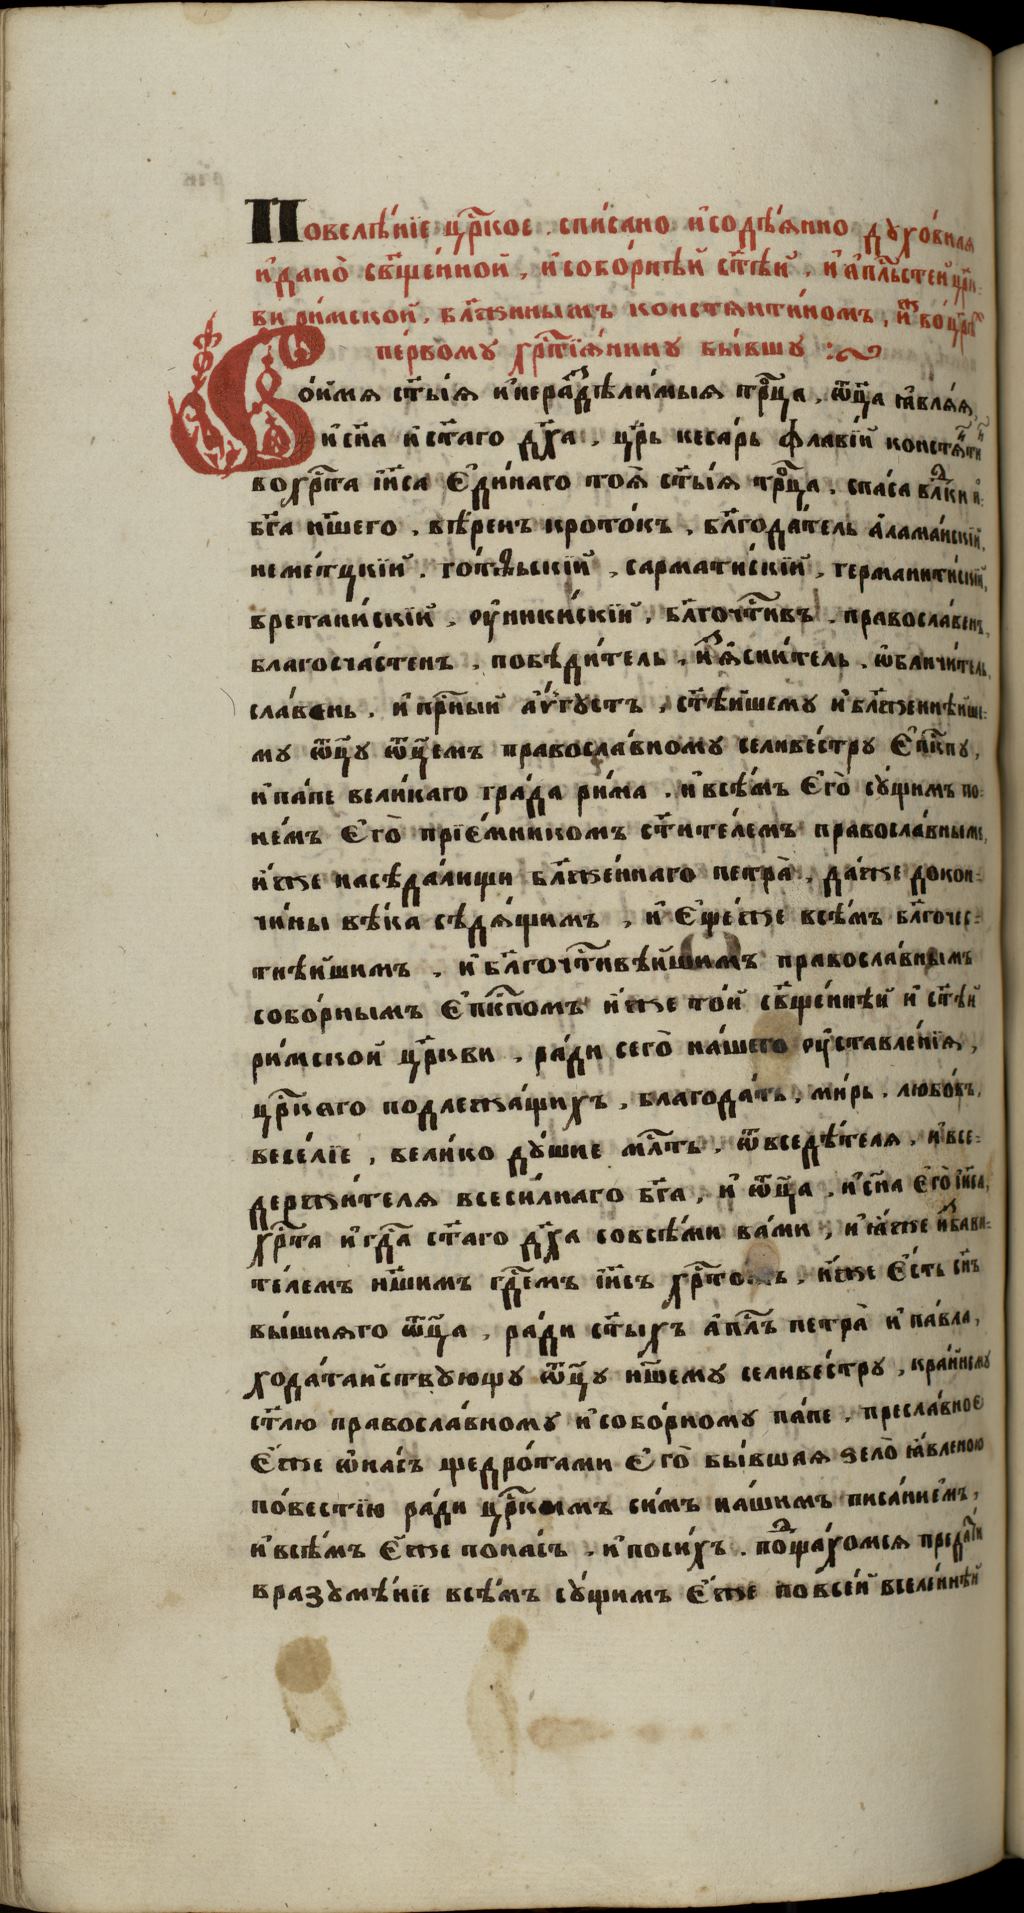 Повелѣ́нїе црⷭ҇кое . спи́сано и҆содѣ́ѧнно дꙋхо́внаѧ
и҆дано̀ сщ҃е́нной , и҆собо́рнѣй ст҃ѣ́й , и҆ а҆пⷭ҇льстей црⷦ҇:
ви ри́мской , бл҃же́ннымъ констѧнти́номъ , и҆́же во црⷭ҇
пе́рвомꙋ хрⷭ҇тїѧ́нинꙋ бы́вшꙋ :~
Во́имѧ ст҃ы́ѧ и҆нераздѣли́мыѧ трⷪ҇ца , ѿц҃а ꙗ҆влѧ́ѧ
и҆сн҃а и҆ст҃аго дх҃а , цр҃ь кеса́рь флавїй констѧнти́нъ
вохрⷭ҇та і҆и҃са є҆ди́наго тоѧ̀ ст҃ы́ѧ трⷪ҇ца . спа́са влⷣки и҆:
бг҃а нш҃его . вѣ́ренъ кро́токъ , бл҃года́тель а҆лама́нскїй,
неме́тцкїй . го́тѳьскїй , сармати́скїй , германити́скїй,
брета́нискїй , ᲂу҆ники́скїй , бл҃гочⷭ҇ти́въ . правосла́венъ,
благосча́стенъ , побѣди́тель , и҆з̾ѧсни́тель . ѡ҆бличи́тель,
сла́венъ . и҆ прⷭ҇ный а҆́ѵгꙋстъ , ст҃ѣ́йшемꙋ и҆ бл҃же́ннѣйше:
мꙋ ѿц҃ꙋ ѿц҃емъ правосла́вномꙋ селиве́стрꙋ є҆пⷭ҇кпꙋ ,
и҆ па́пе вели́каго гра́да ри́ма . и҆ всѣ́мъ є҆го̀ сꙋ́щимъ по:
не́мъ є҆го̀ прїе́мникомъ ст҃и́те́лемъ правосла́внымъ,
и҆́же насѣда́лищи бл҃же́ннаго петра̀ , да́же докон:
чи́ны вѣ́ка сѣдѧ́щимъ , и҆ є҆ще́же всѣ́мъ бл҃гочес:
тнѣ́йшимъ . и҆ бл҃гочⷭ҇тивѣ́йшимъ правосла́внымъ
собо́рнымъ є҆пⷭ҇кпомъ и҆́же то́й сщ҃е́ннѣй и҆ ст҃ѣ́й
ри́мской цр҃кви , ра́ди сего̀ на́шего ᲂу҆ставле́нїѧ ,
црⷭ҇каго подлежа́щихъ , благода́ть , ми́ръ . любо́въ,
весе́лїе , вели́ко дꙋ́шие млⷭ҇ть , ѿвседѣ́телѧ , и҆ все:
держи́телѧ всеси́лнаго бг҃а , и҆ ѿц҃а . и҆ сн҃а є҆го̀ і҆и҃са,
хрⷭ҇та и҆ гдⷭ҇а ст҃аго дх҃а совсѣ́ми ва́ми , и҆ ꙗ҆́же и҆зⸯбави:
те́лемъ нш҃имъ гдⷭ҇емъ і҆и҃съ хрⷭ҇томъ , и҆́же є҆́сть сн҃ъ
вы́шнѧго ѿц҃а , ра́ди ст҃ы́хъ а҆пⷭ҇лъ петра̀ и҆ па́вла,
хода́тайствꙋющꙋ ѿц҃ꙋ нш҃емꙋ селиве́стрꙋ , кра́йнемꙋ
ст҃лю правосла́вномꙋ и҆ собо́рномꙋ па́пе , пресла́вное
є҆́же ѡ҆на́съ щедро́тами є҆го̀ бы́вшаѧ ѕело̀ ꙗ҆́вленою
по́вестїю ра́ди црⷭ҇кимъ си́мъ на́шимъ писа́нїемъ ,
и҆ всѣ́мъ є҆́же пона́съ . и҆ поси́хъ . потⸯща́хомсѧ преда́ти
вразꙋмѣ́нїе всѣ́мъ сꙋ́щимъ є҆́же по все́й вселе́ннѣй